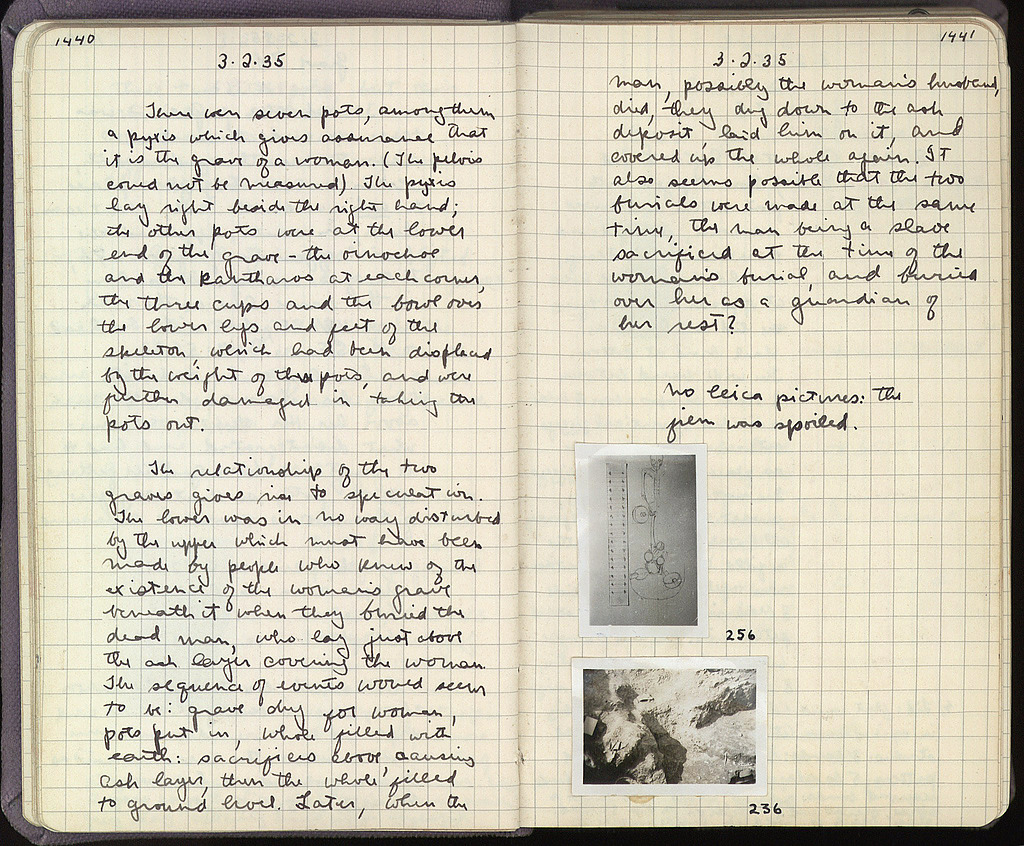 1440
3.2.35
There were seven pots, among them
a pyxis which gives assurance that
it is the grave of a woman. (The pelvis
could not be measured). The pyxis
lay right beside the right hand;
the other pots were at the lower
end of the grave - the oinochoe
and the kantharos at each corner,
the three cups and the bowl over
the lower legs and feet of the
skeleton, which had been displaced
by the weight of the pots, and were
further damaged in taking the
pots out.
The relationship of the two
graves gives rise to speculation.
The lower was in no way disturbed
by the upper which must have been
made by people who knew of the
existence of the woman's grave
beneath it when they buried the
dead man, who lay just above
the ash layer covering the woman.
The sequence of events would seem
to be: grave dug for woman,
pots put in, whole filled with
earth: sacrifices above causing
ash layer, then the whole filled
to ground level. Later, when the
1441
3.2.35
man, possibly the woman's husband,
died, they dug down to the ash
deposit, laid him on it, and
covered up the whole again. It
also seems possible that the two
burials were made at the same
time, the man being a slave
sacrificed at the time of the
woman's burial and buried
over her as a guardian of
her rest?
No Leica pictures: the
film was spoiled.
256
236